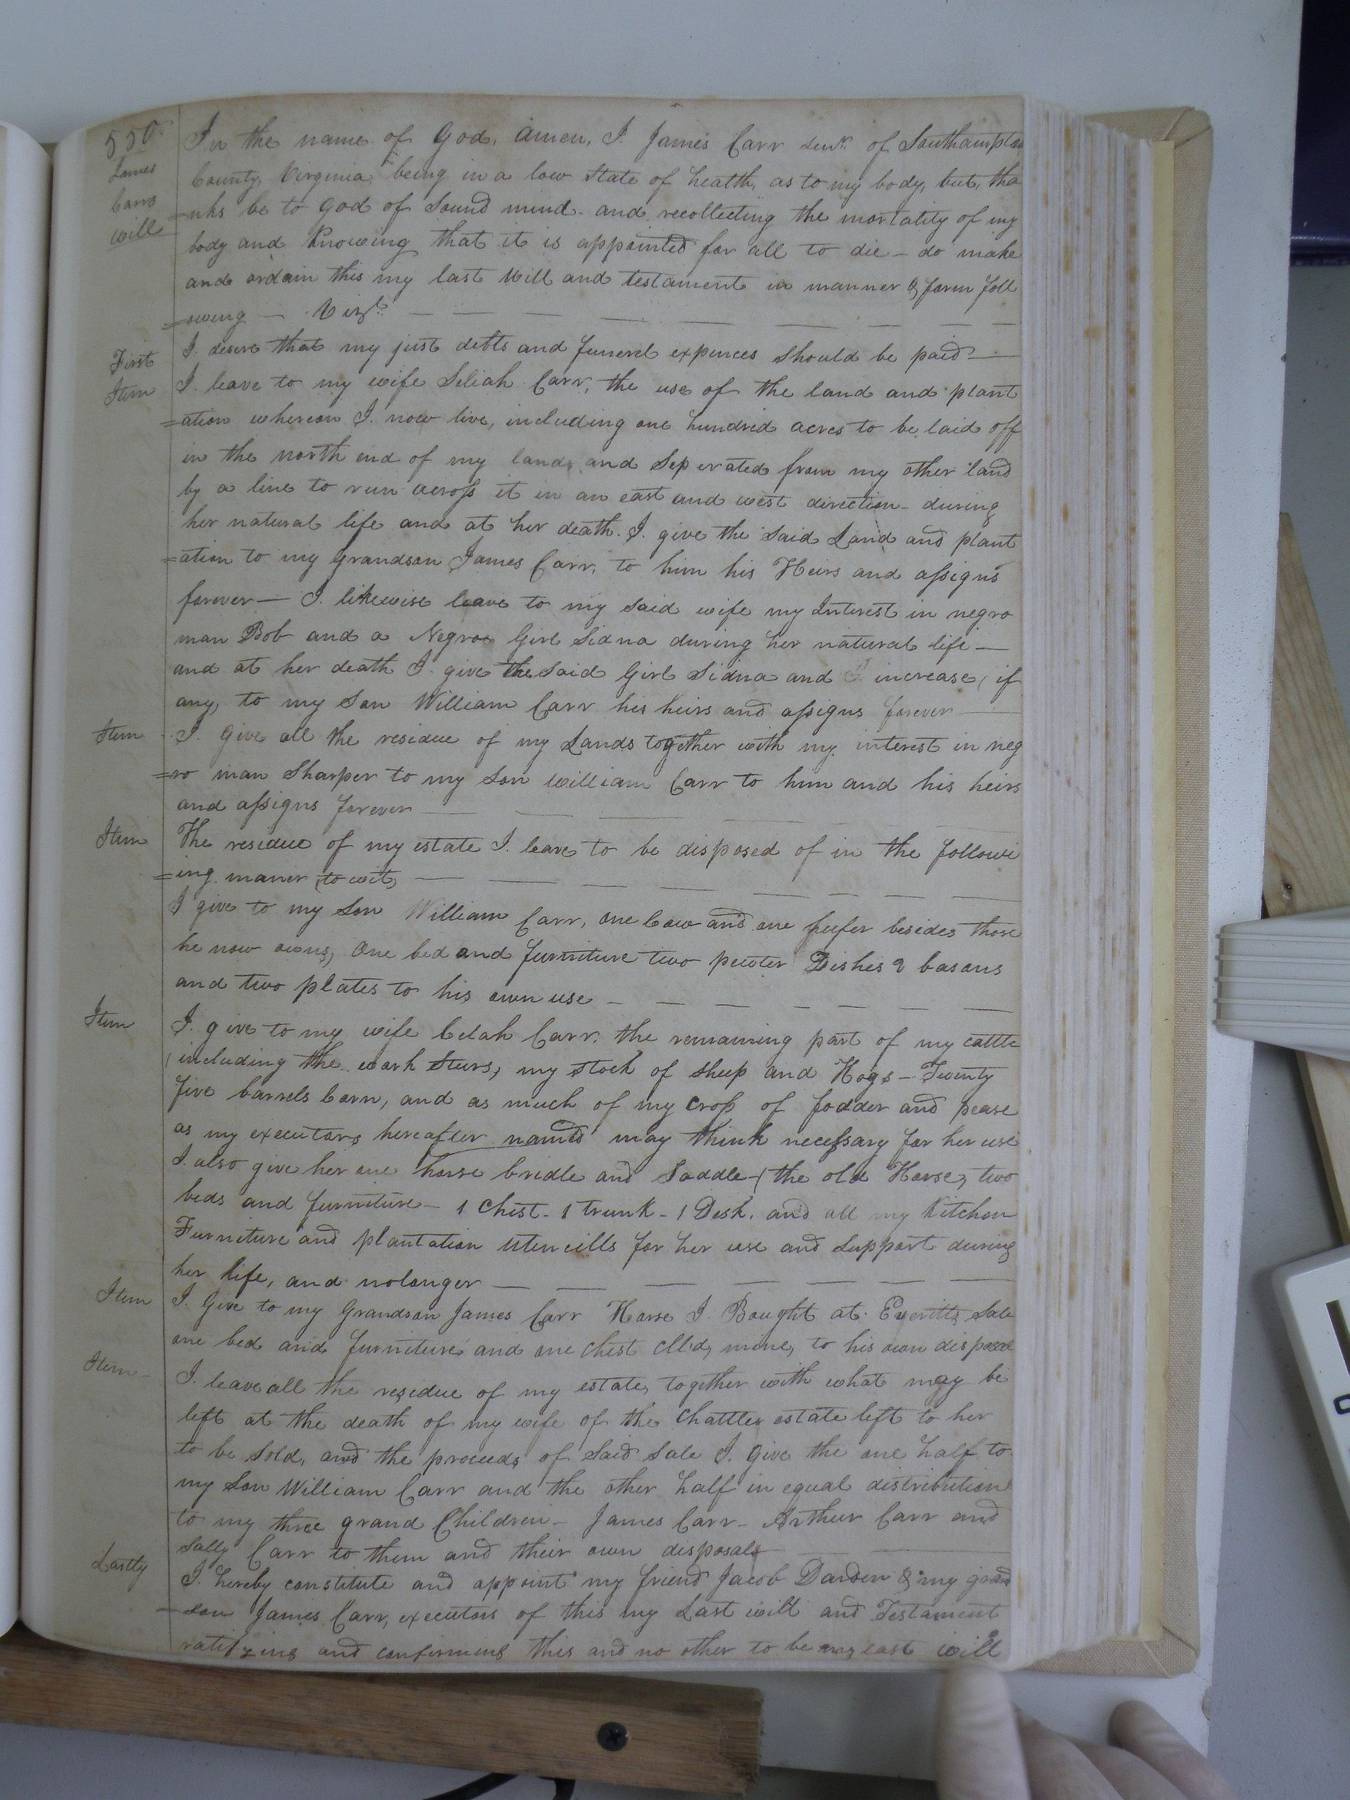 550
James
Carrs
will
In the name of God, Amen, I James Carr senr. of Southampton
County, Virginia, being in a low state of health, as to my body, but, tha
=nks be to God of sound mind - and recollecting the mortality of my
body and knowing that it is appointed for all to die - do make
and ordain this my last will and testament in manner & form foll
=owing - Vizt.
First I desire that my just debts and funerel expences should be paid -
Item I leave to my wife Seliah Carr, the use of the land and plant
=ation whereon I now live, including one hundred acres to be laid off
in the north end of my land, and seperated from my other land
by a line to run across it in an east and west direction - during
her natural life and at her death. I give the said Land and plant
=ation to my Grandson James Carr, to him his Heirs and assigns
forever - I likewise leave to my said wife my Interest in negro
man Bob and a Negroe Girl Sidna during her natural life -
and at her death I give the said Girl Sidna and increase, if
any, to my Son William Carr his heirs and assigns forever
Item I Give all the residue of my Lands together with my interest in neg
=ro man Sharper to my Son William Carr to him and his heirs
and assigns forever
Item The residue of my estate I leave to be disposed of in the followi
=ing maner (to wit)
I give to my Son William Carr, one Cow and one heifer besides those
he now owns, one bed and furniture two pewter Dishes 2 basons
and two plates to his own use
Item I give to my wife Celah Carr. the remaining part of my cattle
(including the work steers, my stock of sheep and Hogs - Twenty
five barrels Corn, and as much of my crop of fodder and pease
as my executors hereafter named may think necessary for her use
I also give her one horse bridle and Saddle - (the old Horse, two
beds and furniture - 1 Chest - 1 trunk - 1 Desk, and all my Kitchen
Furniture and plantation utencills for her use and support during
her life, and no longer
Item I Give to my Grandson James Carr Horse I Bought at Everitts Sale
one bed and furniture and one chest Calld, mine, to his own disposal
Item - I leave all the residue of my estate, together with what may be
left at the death of my wife of the Chattles estate left to her
to be sold, and the proceeds of said sale I give the one half to
my Son William Carr and the other half in equal distribution
to my three grand Children - James Carr - Arthur Carr and
Sally Carr to them and their own disposals
Lastly I hereby constitute and appoint my friend Jacob Darden & my grand
=son James Carr, executors of this my Last will and Testament
ratifying and confirming this and no other to be my last will